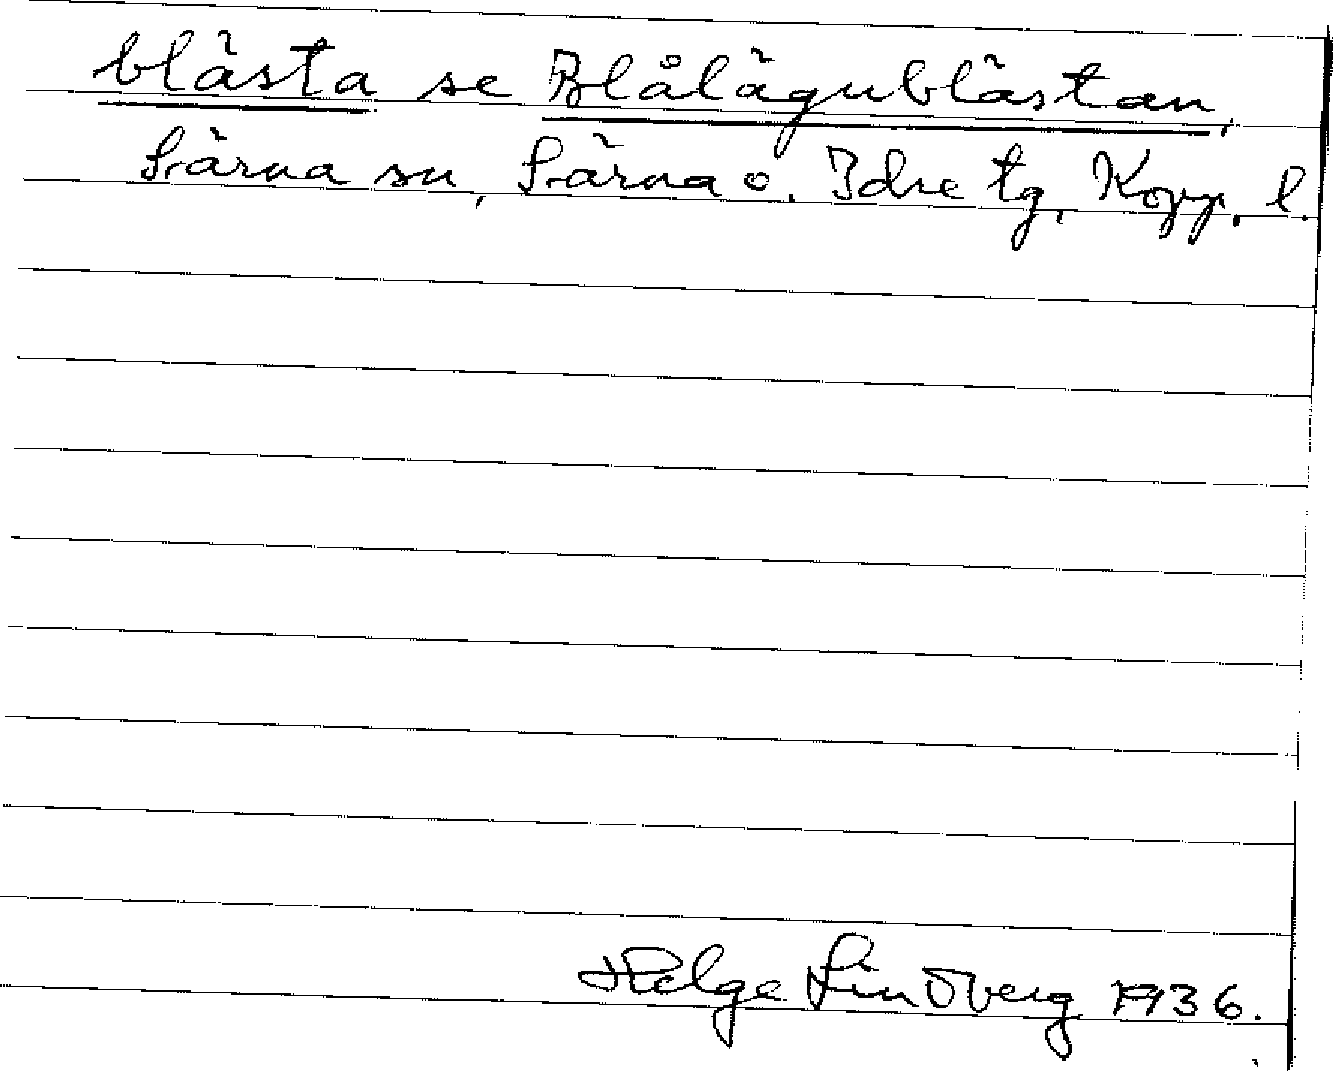 blästa se Blålägublästan,
Särna sn, Särna o. Idre tg, Kopp. l.
Helge Lindberg 1936.